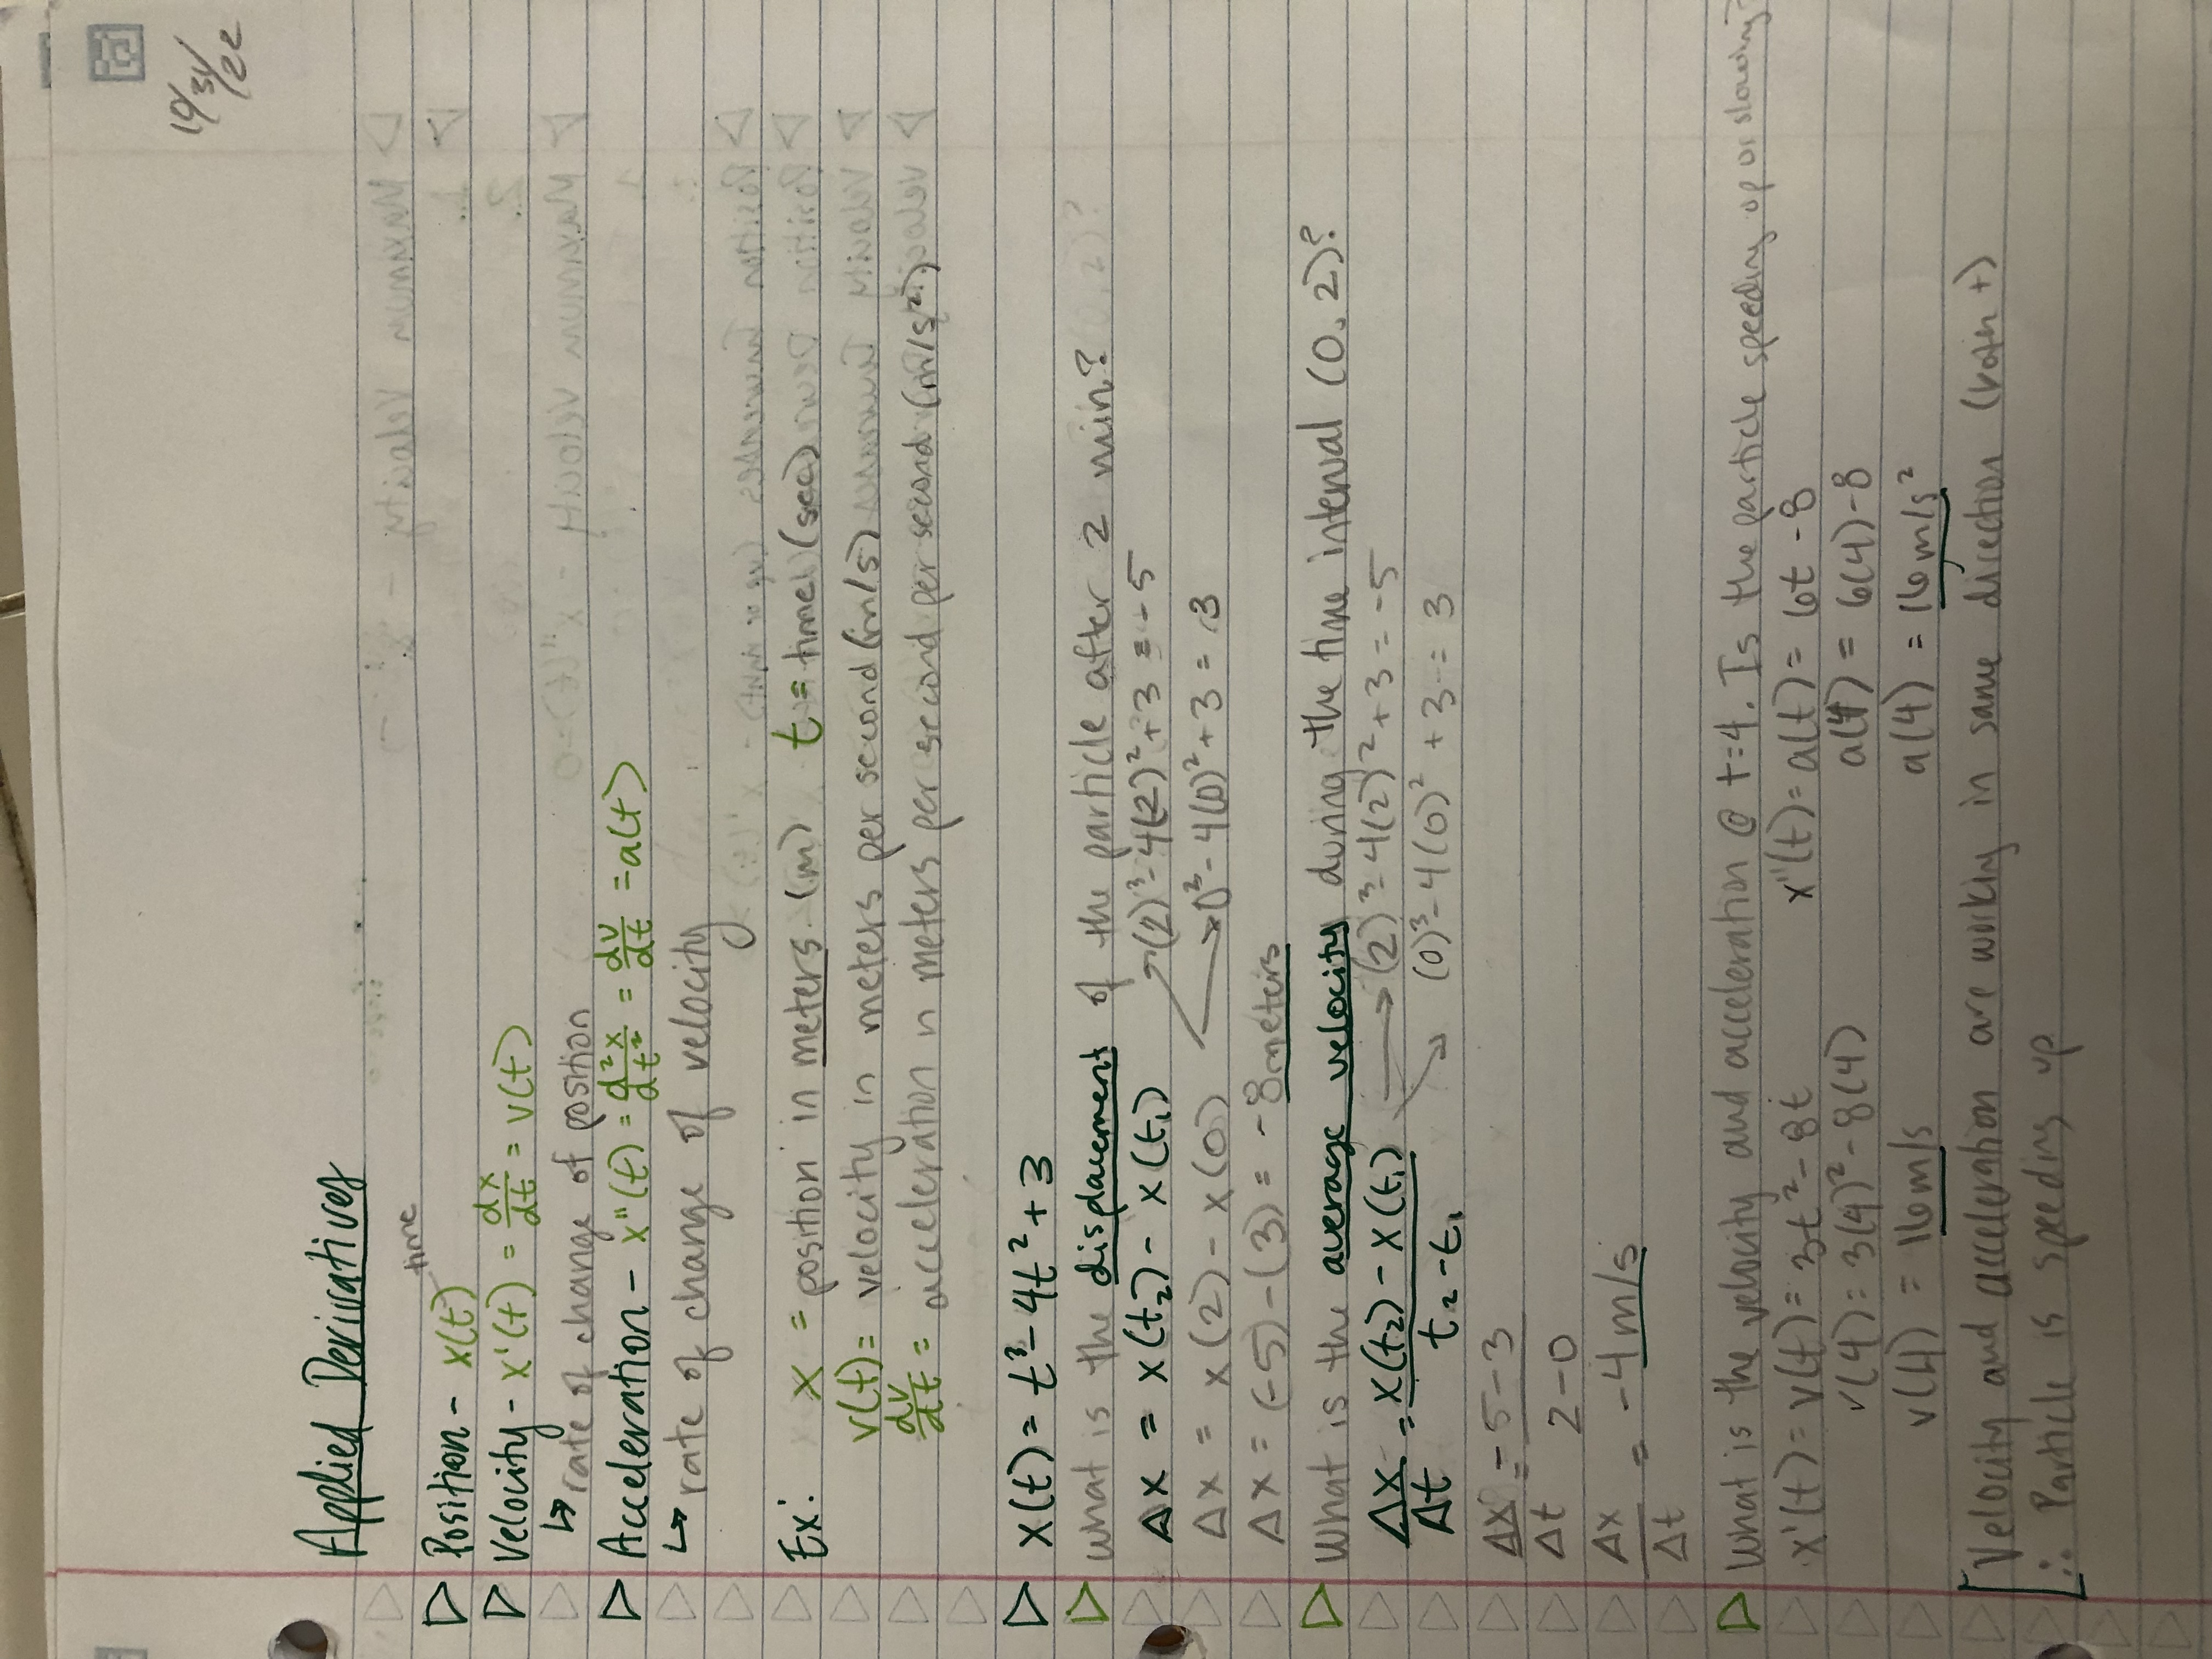 10/31/22
Applied Derivatives
Position - x(t) time
Velocity - x'(t) = dx/dt = v(t)
↳ rate of change of position
Acceleration - x"(t) = d²x/dt² = dv/dt = a(t)
↳ rate of change of velocity
Ex: x = position in meters (m) t = time (sec)
v(t) = velocity in meters per second (m/s)
dv/dt = acceleration in meters per second per second (m/s²)
x(t) = t³ - 4t² + 3
What is the displacement of the particle after 2 min?
Δx = x(t₂) - x(t₁) (2)³ - 4(2)² + 3 = -5
Δx = x(2) - x(0) 0³ - 4(0)² + 3 = 3
Δx = (-5) - (3) = -8 meters
What is the average velocity during the time interval (0, 2)?
Δx/Δt = x(t₂) - x(t₁)/t₂ - t₁ → (2)³ - 4(2)² + 3 = -5
(0)³ - 4(0)² + 3 = 3
Δx/Δt = -5 - 3/2 - 0
Δx/Δt = -4 m/s
What is the velocity and acceleration @ t=4. Is the particle speeding up or slowing?
x'(t) = v(t) = 3t² - 8t x"(t) = a(t) = 6t - 8
v(4) = 3(4)² - 8(4) a(4) = 6(4) - 8
v(4) = 16 m/s a(4) = 16 m/s²
Velocity and acceleration are working in same direction (both +)
∴ Particle is speeding up